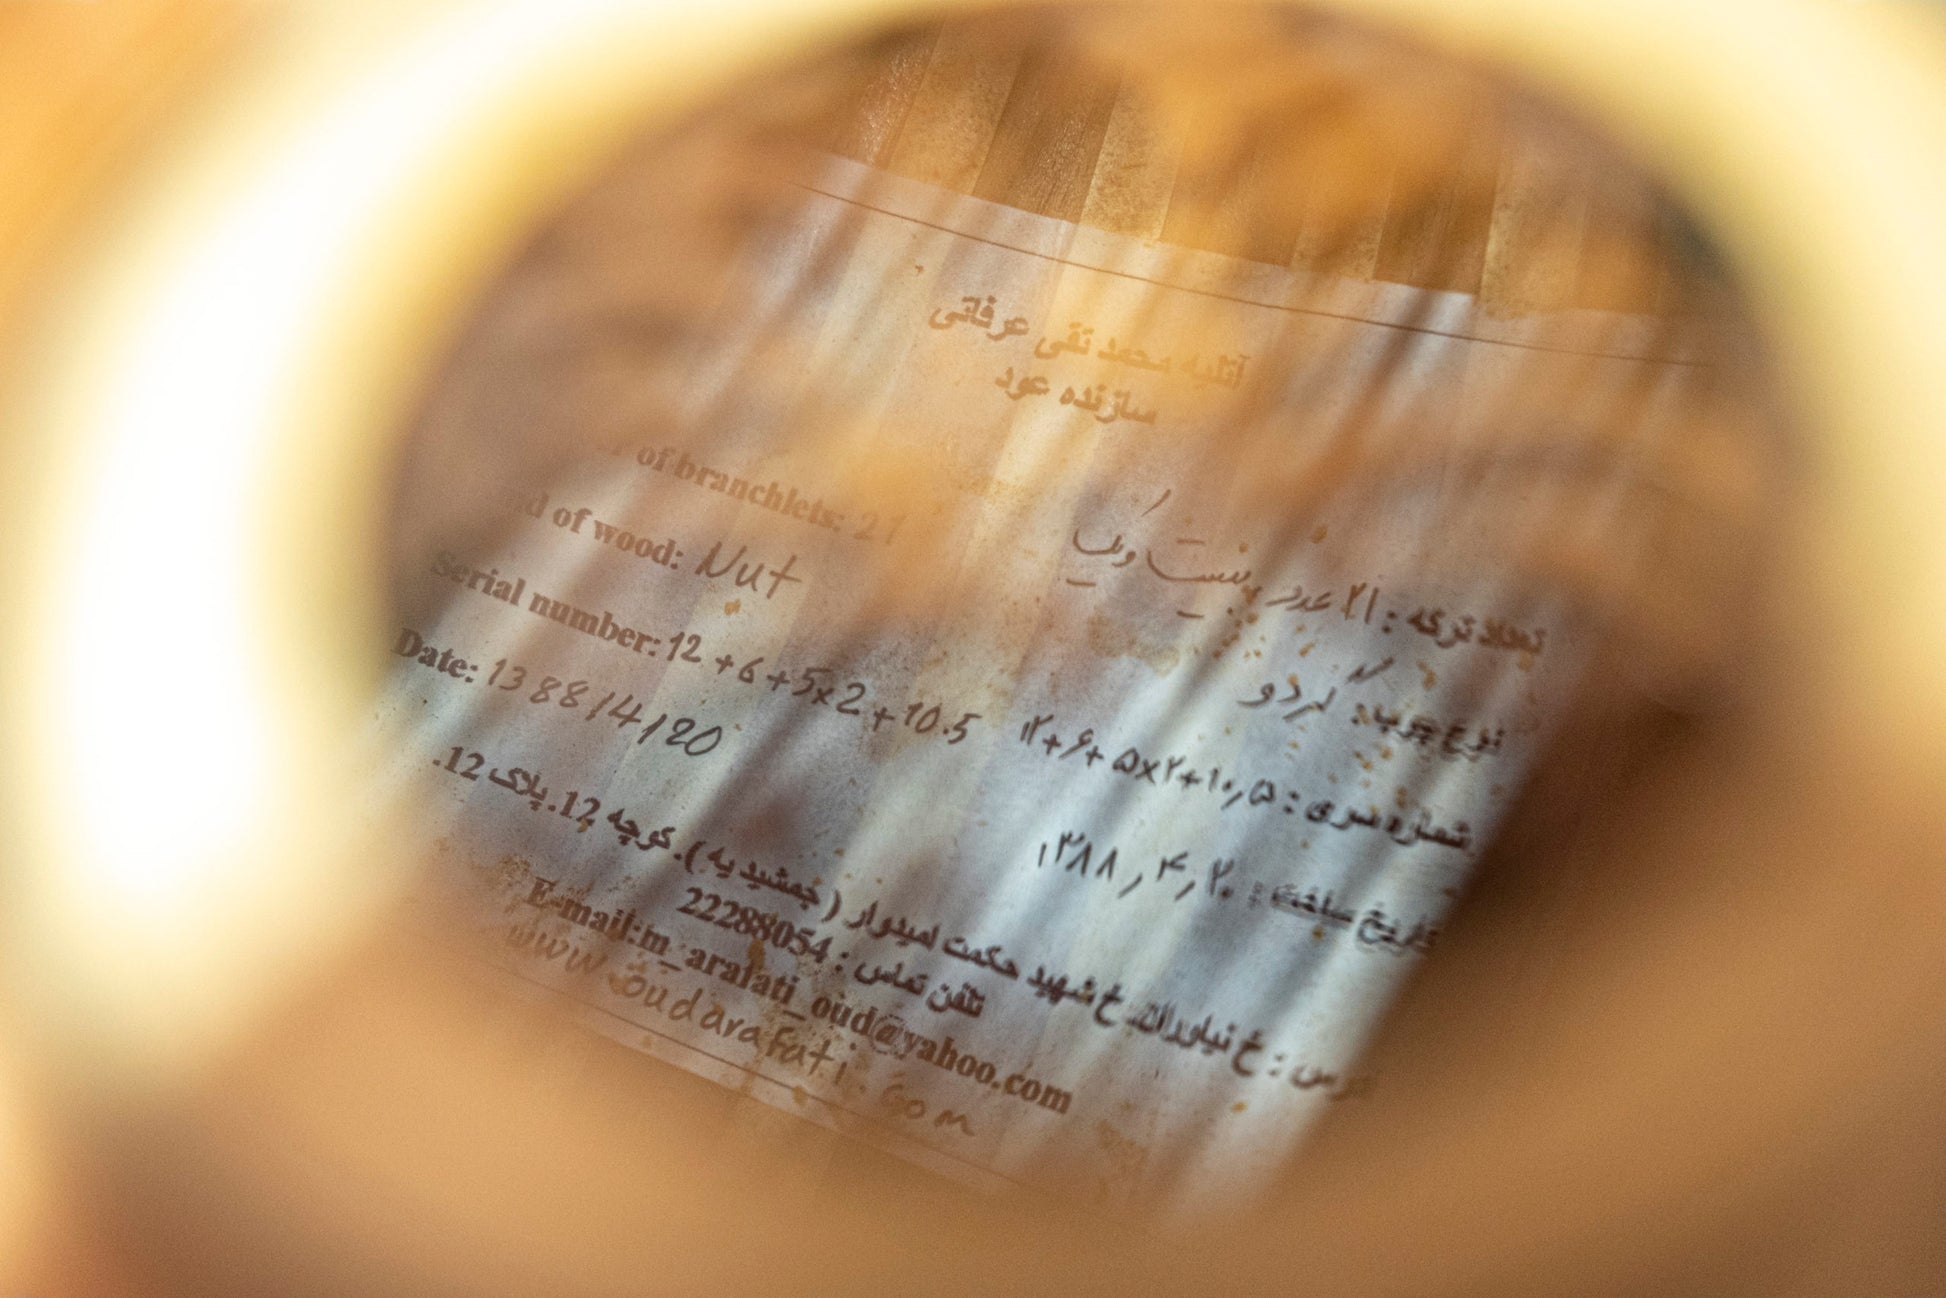 آتلیه محمد تقی عرفاتی
سازنده عود
of branchlets: 21
تعداد ترکه : ۲۱ عدد بیست و یک
of wood: Nut
نوع چوب : گردو
Serial number: 12+6+5x2+10.5
شماره سری : ۱۲+۶+۵x۲+۱۰٫۵
Date: 1388/4/20
تاریخ ساخت : ۱۳۸۸٫۴٫۲۰
خ نیاوران. خ شهید حکمت امیدوار ( جمشید یه ). کوچه 12. پلاک 12.
تلفن تماس : 22288054
E-mail:m_arafati_oud@yahoo.com
www.oudarafati.com